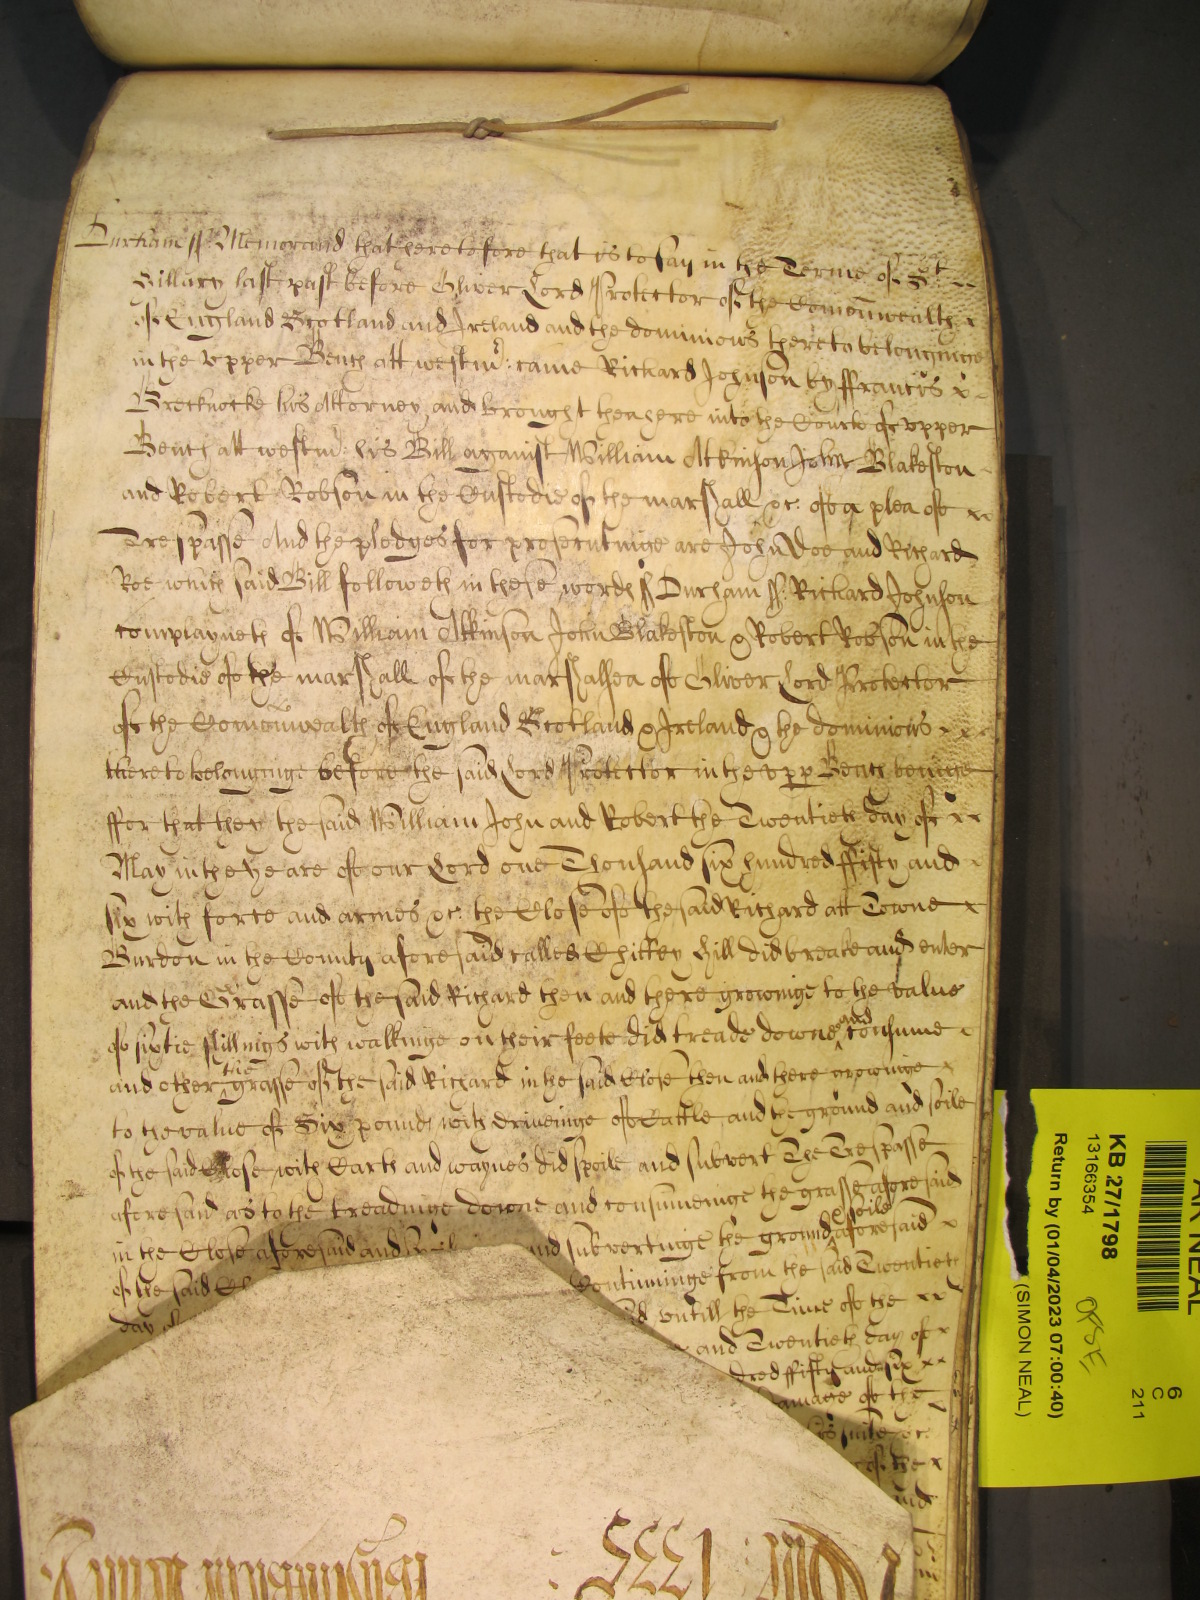 Durham ss Memorand that heretofore that is to say in the Terme of St
Hillary last past before Oliver Lord Protector of the Comonwealth
of England Scotland and Ireland and the dominions thereto belonginge
in the vpper Bench att westm: came Richard Johnson by ffrancis
Brecknocke his Attorney and brought then here into the Court of vpper
Bench att westm: his Bill against William Atkinson John Blakeston
and Robert Robson in the Custodie of the marshall &c. of a plea of
Trespasse And the pledges for prosecutinge are John Doe and Richard
Roe which said Bill followeth in these words ss Durham ss. Richard Johnson
complayneth of William Atkinson John Blakeston & Robert Robson in the
Custodie of the marshall of the marshalsea of Oliver Lord Protector
of the Comonwealth of England Scotland & Ireland & the dominions
thereto belonginge before the said Lord Protector in the vpp Bench beinge
ffor that they the said William John and Robert the Twentieth day of
May in the yeare of our Lord one Thousand six hundred ffifty and
six with force and armes &c. the Close of the said Richard att Towne
Burdon in the County aforesaid called Whickey Hill did breake and enter
and the Grasse of the said Richard then and there growinge to the value
of sixtie shillings with walkinge on their feete did treade downe and consume
and other the grasse of the said Richard in the said Close then and there growinge
to the value of Six pounds with driveinge of Cattle and the ground and soile
of the said Close with Carts and waynes did spoile and subvert The Trespasse
aforesaid as to the treadinge downe and consumeinge the grasse aforesaid
in the Close aforesaid and and subvertinge the ground & soile aforesaid
of the said Continuinge from the said Twentieth
day of vntill the Time of the
and Twentieth day of
dred ffifty and six
damage of the
suite &c.
of the
and
AR NEAL
KB 27/1798
13166354
Return by (01/04/2023 07:00:40)
(SIMON NEAL)
6
C
211
1555